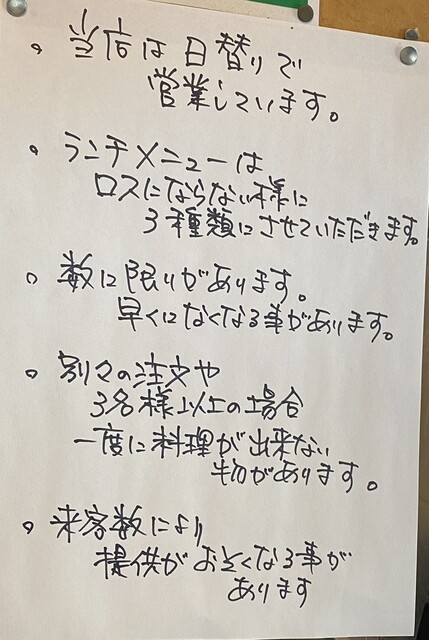 。当店は日替りで
営業しています。
。ランチメニューは
ロスにならない様に
3種類にさせていただきます。
。数に限りがあります。
早くになくなる事があります。
。別々の注文や
3名様以上の場合
一度に料理が出来ない
物があります。
。来客数により
提供がおそくなる事が
あります